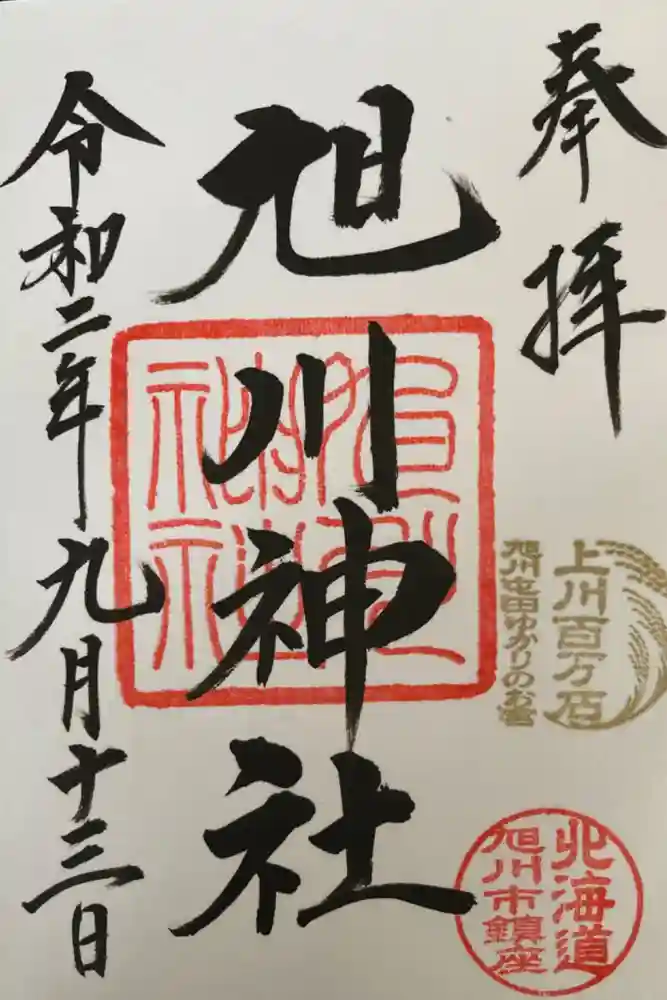 奉拝
上川百万石
旭川屯田ゆかりのお宮
北海道
旭川市鎮座
旭川神社
令和二年九月十三日